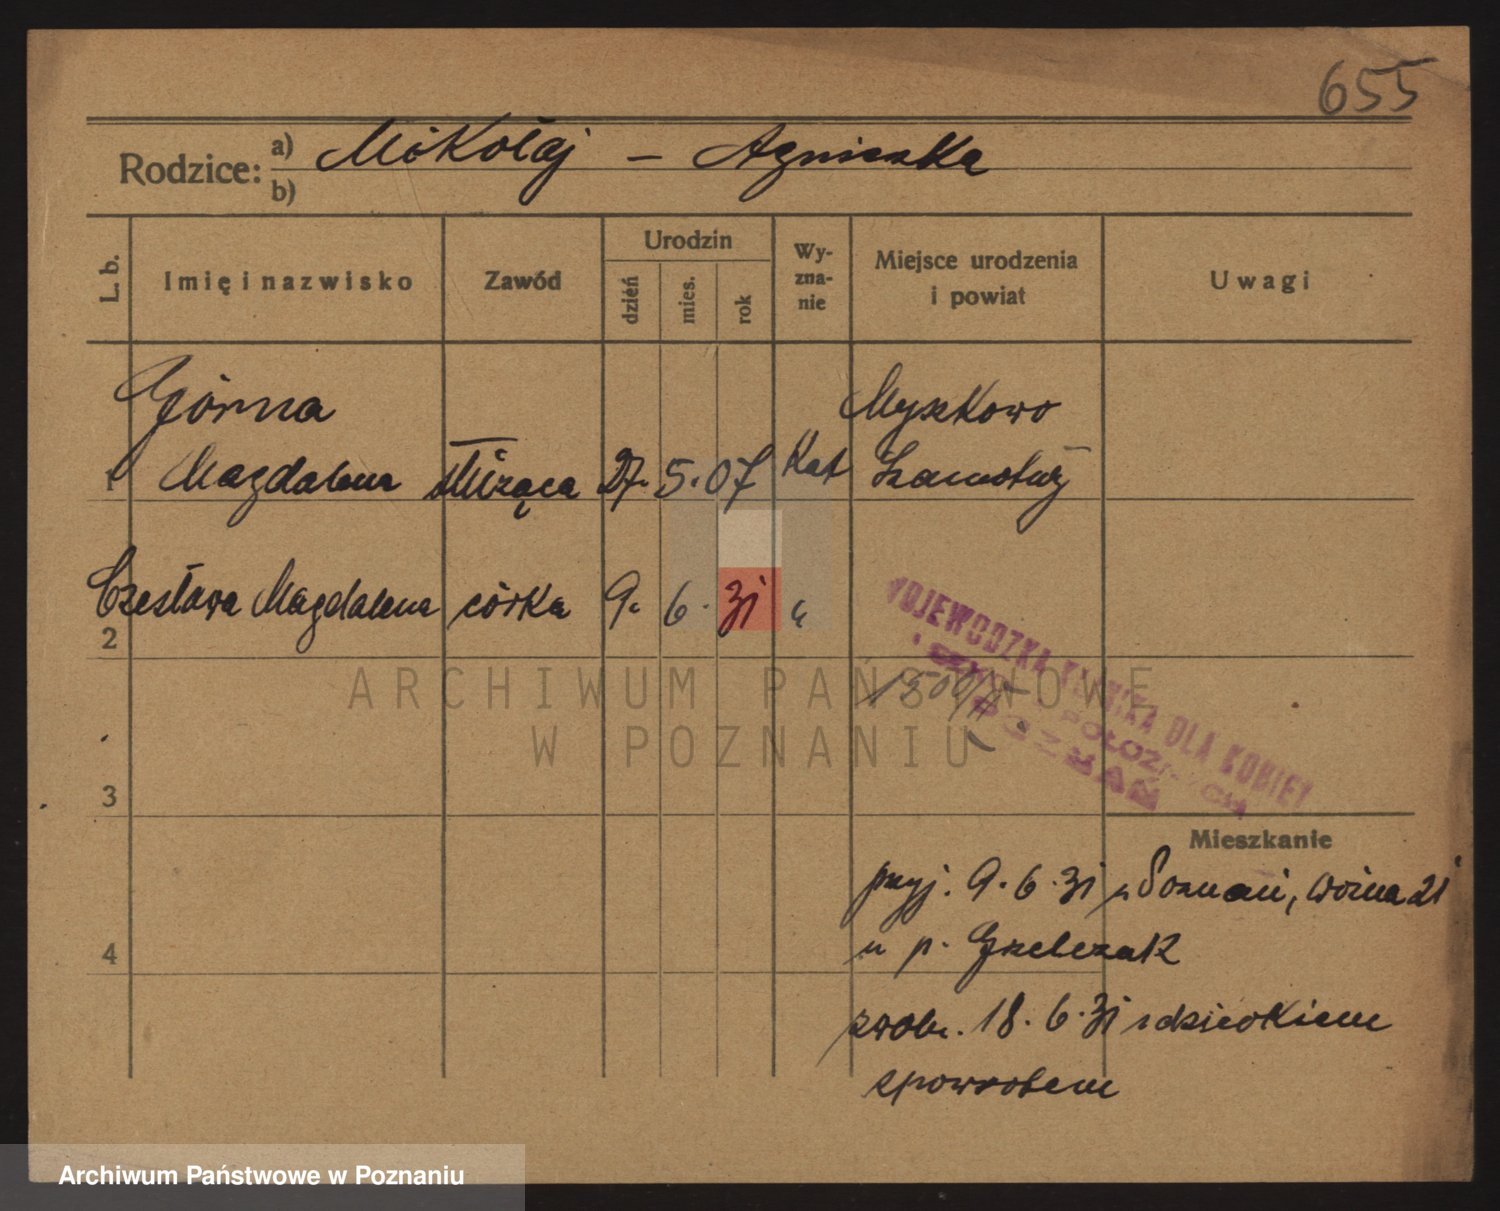 655
Rodzice: a) Mikołaj – Agnieszka
b)
L. b.
Imię i nazwisko
Zawód
Urodzin
dzień
mies.
rok
Wy-
zna-
nie
Miejsce urodzenia
i powiat
Uwagi
Górna
Myszkowo
1 Magdalena służąca 27. 5. 07 Kat Szamotuły
Czesława Magdalena córka 9. 6. 31 "
2
WOJEWÓDZKA KLINIKA DLA KOBIET
POŁOŻNYCH
POZNAŃ
ARCHIWUM PAŃSTWOWE
W POZNANIU
3
Mieszkanie
przyj. 9. 6. 31 z Poznani, Woźna 21
4 u p. Grzelczak
zwoln. 18. 6. 31 z dzieckiem
zpowrotem
Archiwum Państwowe w Poznaniu